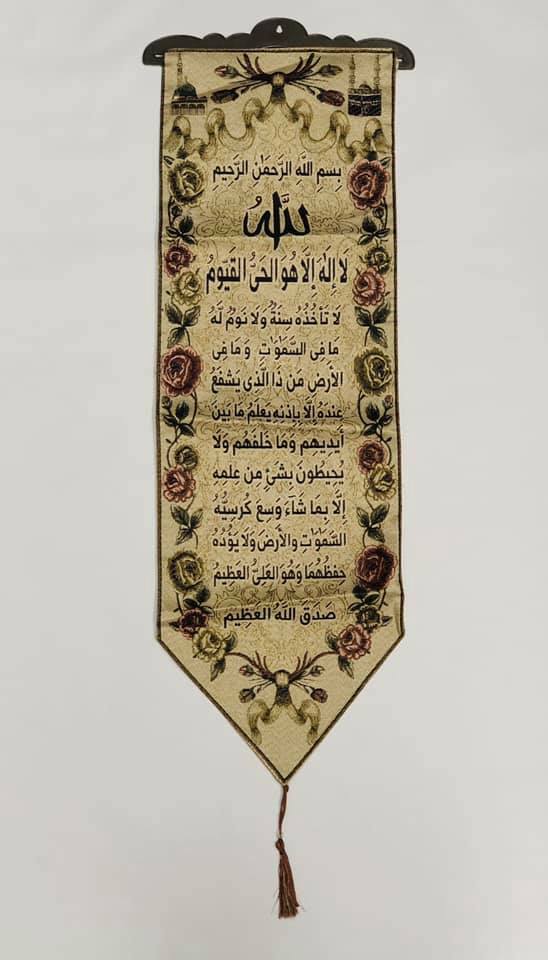 بِسمِ اللَّهِ الرَّحمَٰنِ الرَّحِيمِ
اللَّهُ
لَا إِلَٰهَ إِلَّا هُوَ الحَىُّ القَيُّومُ
لَا تَأخُذُهُ سِنَةٌ وَلَا نَومٌ لَّهُ
مَا فِى السَّمَٰوَٰتِ وَمَا فِى
الأَرضِ مَن ذَا الَّذِى يَشفَعُ
عِندَهُ إِلَّا بِإِذنِهِ يَعلَمُ مَا بَينَ
أَيدِيهِم وَمَا خَلفَهُم وَلَا
يُحِيطُونَ بِشَىءٍ مِن عِلمِهِ
إِلَّا بِمَا شَاءَ وَسِعَ كُرسِيُّهُ
السَّمَٰوَٰتِ وَالأَرضَ وَلَا يَؤُدُهُ
حِفظُهُمَا وَهُوَ العَلِىُّ العَظِيمُ
صَدَقَ اللَّهُ العَظِيم